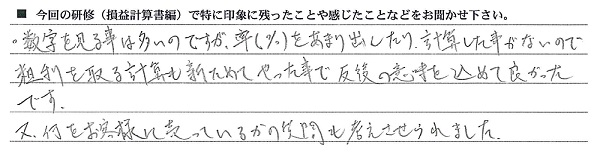 ■ 今回の研修（損益計算書編）で特に印象に残ったことや感じたことなどをお聞かせ下さい。
・数字を見る事は多いのですが、率(%)をあまり出したり、計算した事がないので
粗利を取る計算も新ためてやった事で反復の意味を込めて良かった
です。
又、何をお客様に売っているかの質問も考えさせられました。